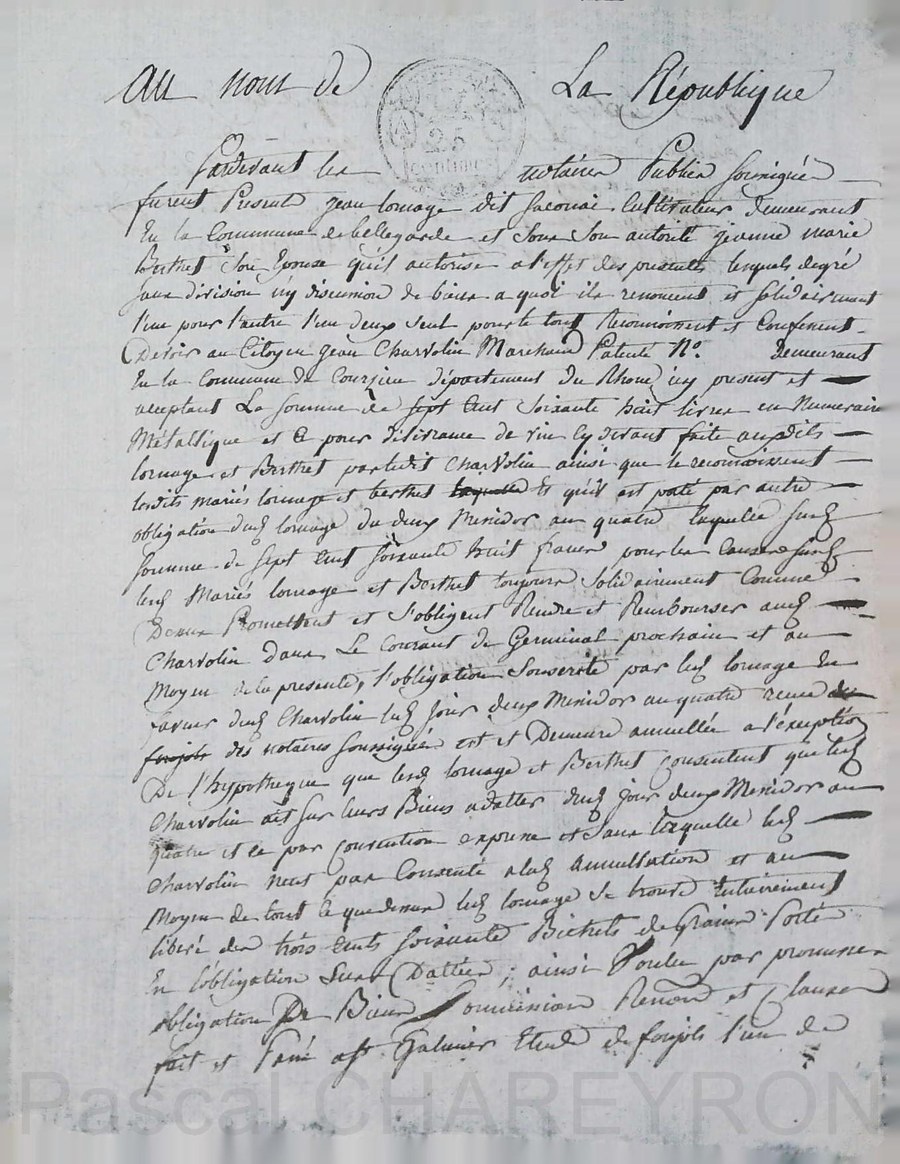 au nom de La République
25
centimes
Pardevant les notaires Publics soussignés
furent Présent jean lornage dit saconai Cultivateur demeurant
En la Commune de bellegarde et sous son autorité jeanne marie
Berthet son Epouse qu'il autorise a l'effet des presentes lesquels degré
sans division ny discussion de biens a quoi ils renoncent et solidairement
l'un pour l'autre l'un deux seul pour le tout Reconnoissent et Confessent
Devoir au Citoyen jean Charvolin Marchand Patenté N.° Demeurant
En la Commune de Coursieu département du Rhone icy present et
acceptant La somme de sept Cent soixante huit livres en Numeraire
Métallique et ce pour délivrance de vin cy devant faite auxdits
lornage et Berthet par ledit Charvolin ainsi que le reconnoissent
lesdits mariés lornage et berthet Et qu'il est porté par autre
obligation dud lornage du deux Messidor an quatre laquelle susd
somme de sept Cent soixante huit francs pour les Causes susd
lesd Mariés lornage et Berthet toujours solidairement Comme
Dessus Promettent et s'obligent Rendre et Rembourser aud
Charvolin dans Le Courant de Germinal prochain et au
Moyen de la presente, l'obligation souscrite par led lornage En
faveur dud Charvolin led jour deux Messidor an quatre recue
des notaires soussignés est et Demeure annullée a l'exception
De l'hypotheque que lesd lornage et Berthet Consentent que led
Charvolin ait sur leurs Biens a datter dud jour deux Messidor an
quatre et ce par Convention expresse et sans laquelle led
Charvolin neut pas Consenté a lad annullation et au
Moyen de tout ce que dessus led lornage se trouve Entierement
libéré des trois Cents soixante Bichets de Grains Portés
En l'obligation sus Dattée; ainsi Voulu par promesses
obligation De Biens Soumission Renon et Clauses
fait et Passé a Galmier Etude de foujols l'un de
Pascal CHAREYRON